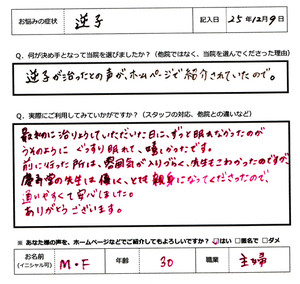 お悩みの症状 逆子 記入日 25年12月9日
Q．何が決め手となって当院を選びましたか？（他院ではなく、当院を選んでくださった理由）
逆子が治ったとの声が、ホームページで紹介されていたので。
Q．実際にご利用してみていかがですか？（スタッフの対応、他院との違いなど）
最初に治りょうしていただいた日に、ずっと眠れなかったのが
うそのように ぐっすり眠れて、嬉しかったです。
前に行った所は、雰囲気が入りづらく、先生もこわかったのですが、
慶寿堂の先生は優しく、とても親身になってくださったので、
通いやすくて安心しました。
ありがとうございます。
※ あなた様の声を、ホームページなどでご紹介してもよろしいですか？ ☑はい □匿名で □ダメ
お名前（イニシャル可） M・F 年齢 30 職業 主婦